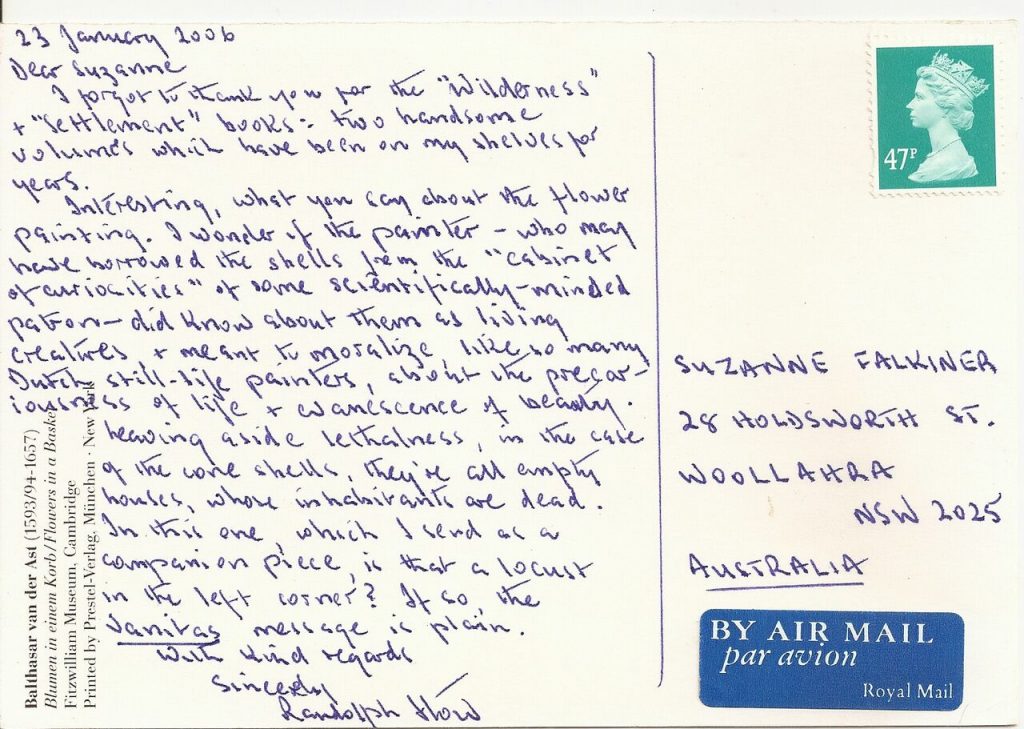 23 January 2006
Dear Suzanne
I forgot to thank you for the "Wilderness"
+ "Settlement" books: two handsome
volumes which have been on my shelves for
years.
Interesting, what you say about the flower
painting. I wonder if the painter – who may
have borrowed the shells from the "cabinet
of curiosities" of some scientifically-minded
patron – did know about them as living
creatures, + meant to moralize, like so many
Dutch still-life painters, about the precar-
iousness of life + evanescence of beauty.
Leaving aside lethalness, in the case
of the cone shells, they're all empty
houses, whose inhabitants are dead.
In this one, which I send as a
companion piece, is that a locust
in the left corner? If so, the
Vanitas message is plain.
With kind regards
Sincerely
Randolph Stow
Balthasar van der Ast (1593/94-1657)
Blumen in einem Korb/Flowers in a Basket
Fitzwilliam Museum, Cambridge
Printed by Prestel-Verlag, München · New York
47P
SUZANNE FALKINER
28 HOLDSWORTH ST.
WOOLLAHRA
NSW 2025
AUSTRALIA
BY AIR MAIL
par avion
Royal Mail